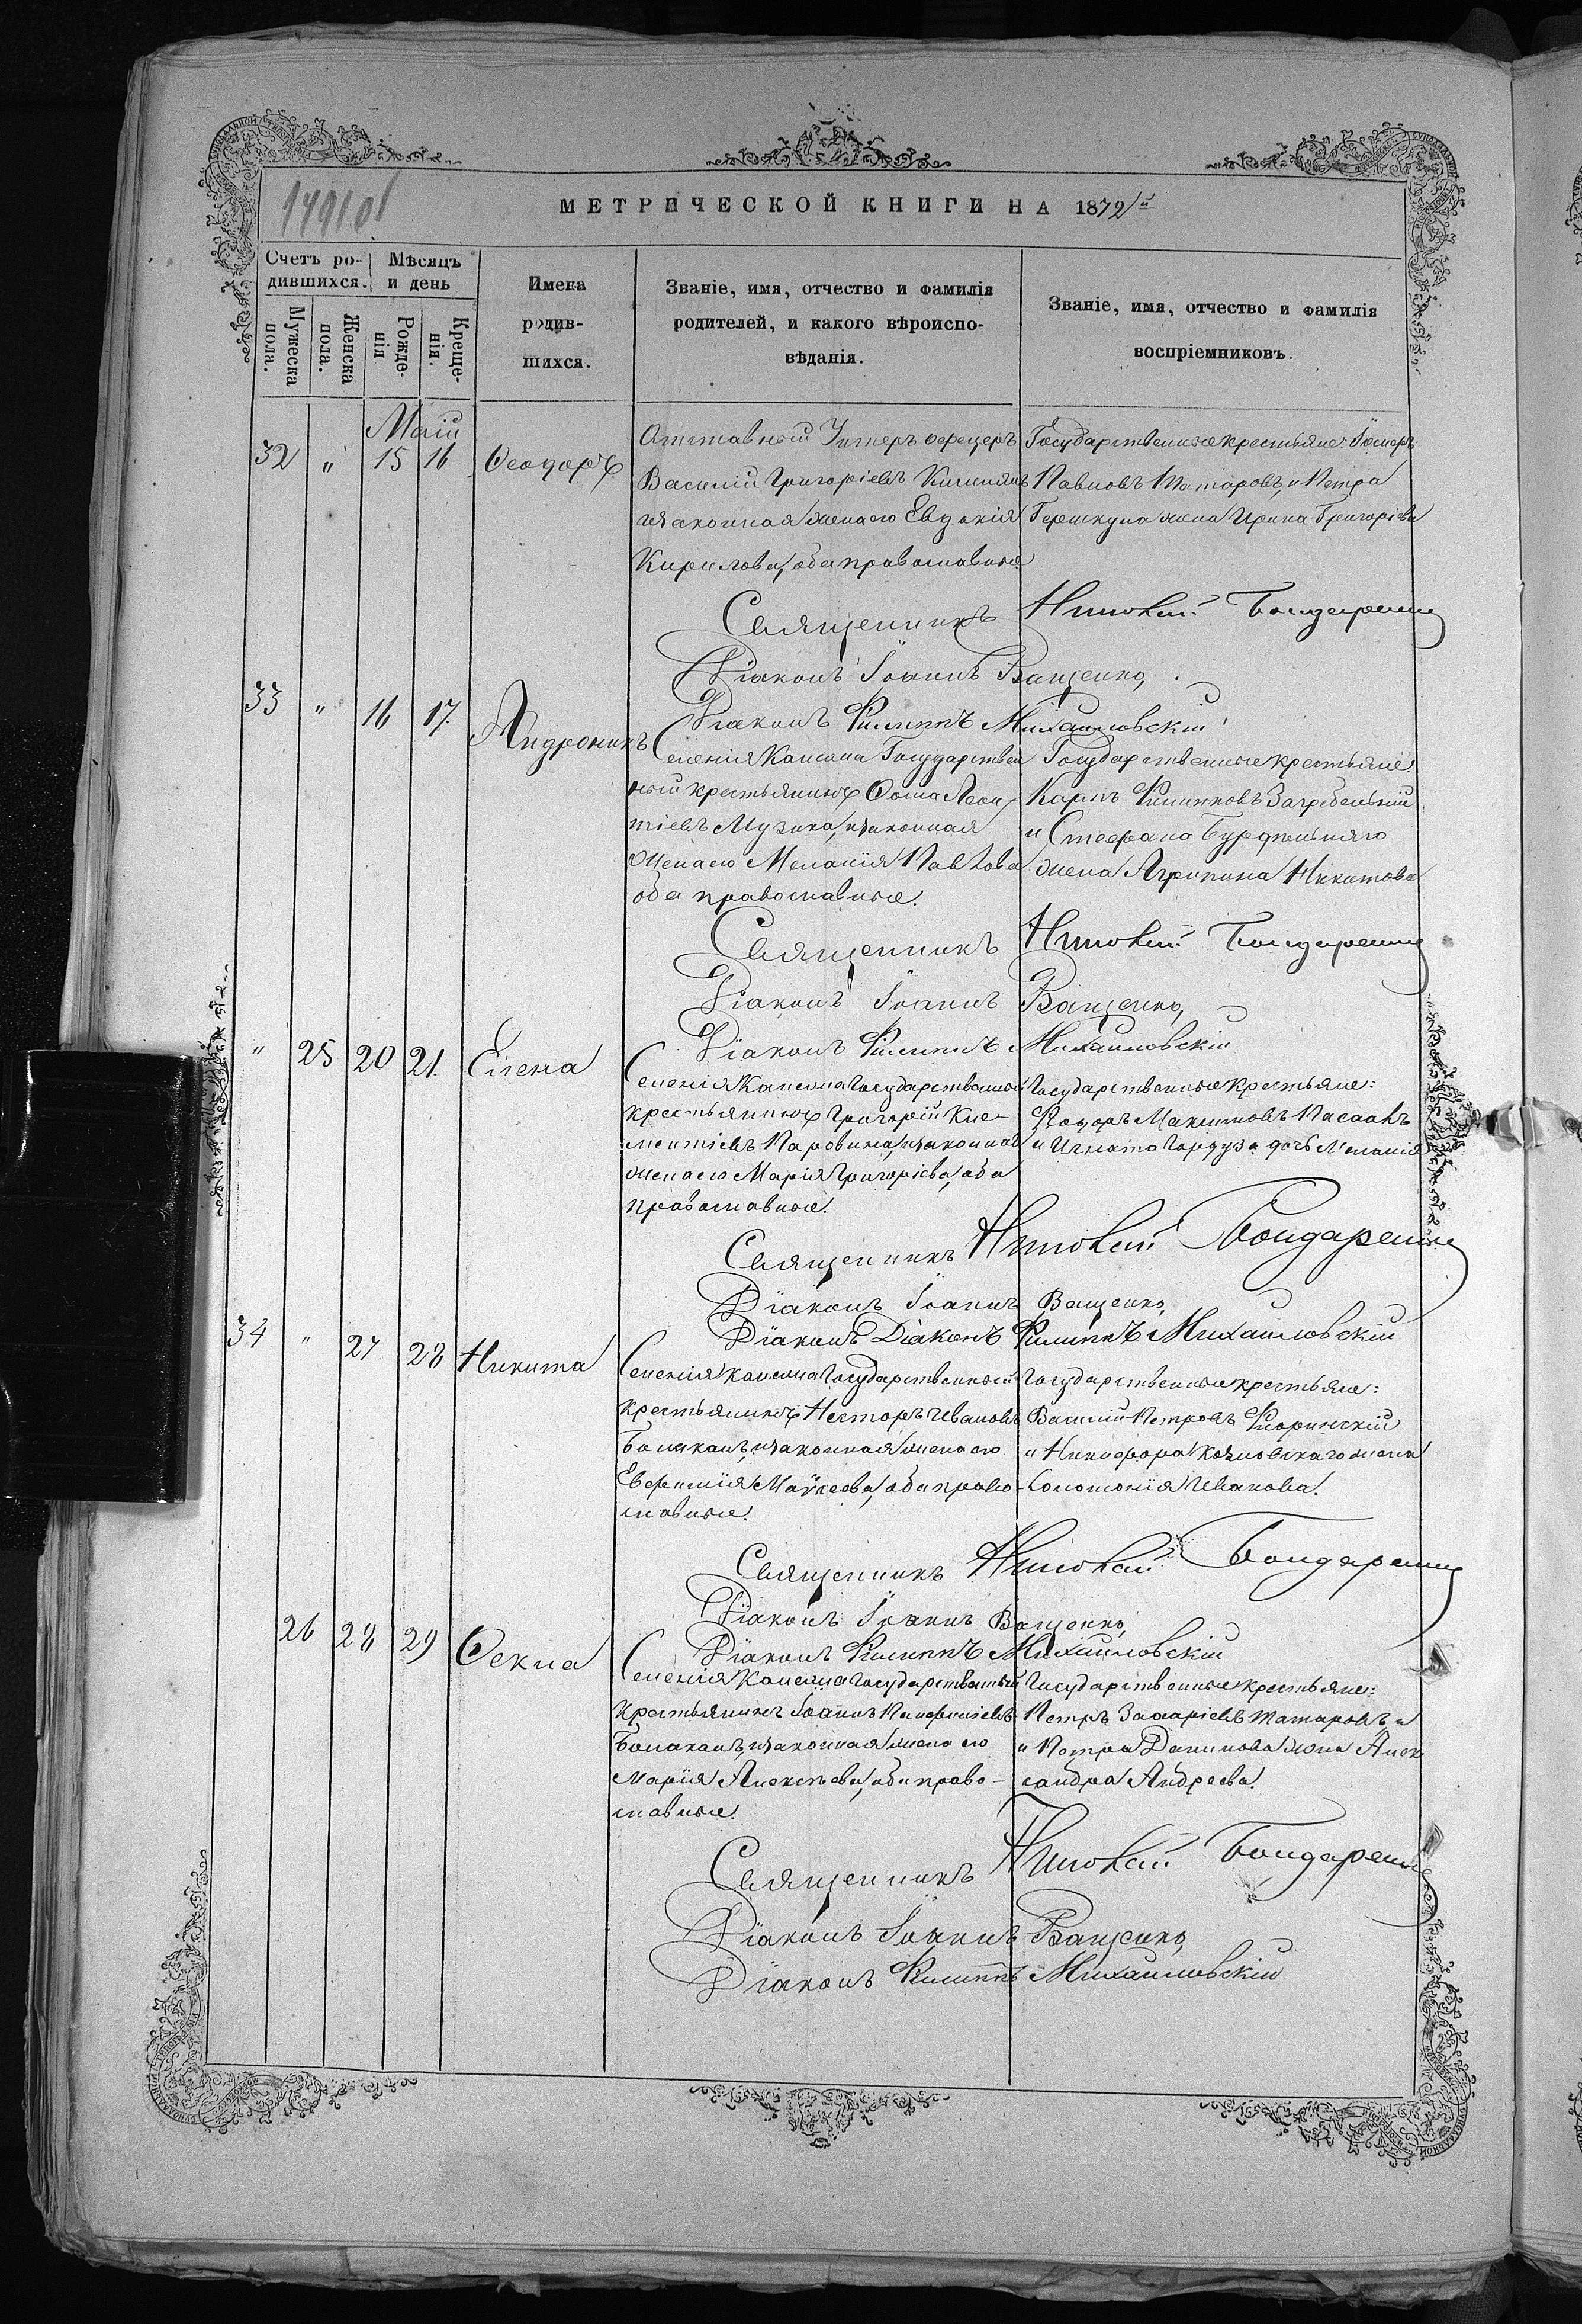 МЕТРИЧЕСКОЙ КНИГИ НА 1872й
Счетъ родившихся.
Мѣсяцъ и день
Имена родившихся.
Званіе, имя, отчество и фамилія родителей, и какого вѣроисповѣданія.
Званіе, имя, отчество и фамилія воспріемниковъ.
Мужеска пола.
Женска пола.
Рожденія
Крещенія.
Маій
32 " 15 16 Ѳеодоръ
Отставной Унтеръ офецеръ
Василій Григоріевъ
изаконная женаего Евдокія
Кирилова, оба православные
Государственные крестьяне:
Павловъ Татаровъ, и Петра
жена Ирина Григоріева
Священникъ Бондаренко
Діаконъ Іоаннъ Ващенко,
Діаконъ Филиппъ Михаиловскій
33 " 16 17. Андроникъ
Селенія Государствен
ный крестьянинъ Ѳома Леон-
тіевъ Музыка, изаконная
Женаего Меланія Павлова
оба православные.
Государственные крестьяне
Карпъ Филипповъ Загребельный
и Стефана
жена Агрипина Никитова
Священникъ Бондаренко
Діаконъ Іоаннъ Ващенко,
Діаконъ Филиппъ Михаиловскій
" 25 20 21. Елена
Селенія Государственный
крестьянинъ Григорій Кле-
ментіевъ изаконная
женаего Марія Григоріева, оба
православные.
Государственные крестьяне:
Ѳедоръ Максимовъ
и Игната дочь Меланія
Священникъ Бондаренко
Діаконъ Іоаннъ Ващенко
Діаконъ Діаконъ Филиппъ Михаиловскій
34 " 27 28 Никита
Селенія Государственный
крестьянинъ Несторъ Ивановъ
Балаканъ, изаконная жена его
Евфимія оба право-
славные.
Государственные крестьяне:
Василій Петровъ
и Никифора Козловскаго жена
Соломонія Иванова.
Священникъ Бондаренко
Діаконъ Іоаннъ Ващенко,
Діаконъ Филиппъ Михаиловскій
26 28 29 Ѳекла
Селенія Государственный
Крестьянинъ Іоаннъ
Балаканъ, изаконная жена его
Марія Алексѣева, оба право-
славные.
Государственные крестьяне:
Петръ Захаріевъ Татаровъ, и
и Петра Данилова жена Алек
сандра Андреева.
Священникъ Бондаренко
Діаконъ Іоаннъ Ващенко,
Діаконъ Филиппъ Михаиловскій